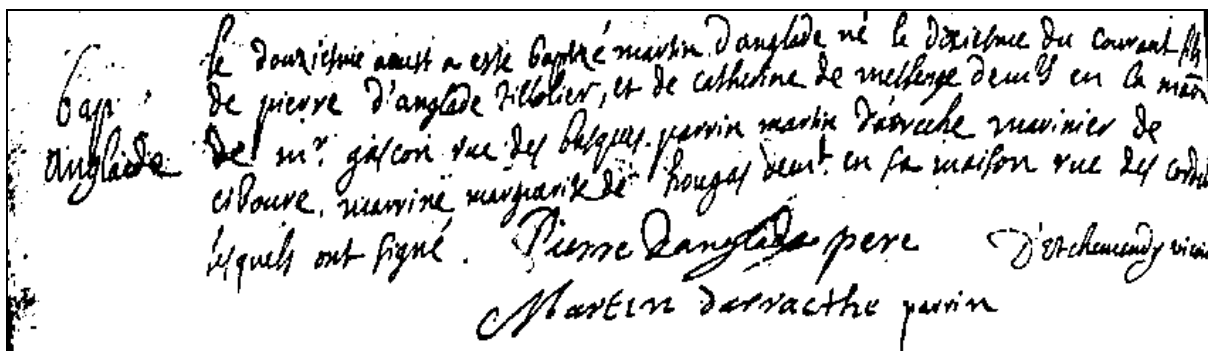 le douziesme aoust a esté baptizé martin d'anglade né le dixiesme du courant fils
de pierre d'anglade tillolier, et de catherine de dem.ts en la maõn
de mr. gascon rue des basques. parrin martin d'arreche marinier de
ciboure, marrine marguerite de hougas dem.t en sa maison rue des
lesquels ont signé. Pierre Danglade pere D'Etchemendy vicaire
Martin darracthe parrin
bap.
anglade